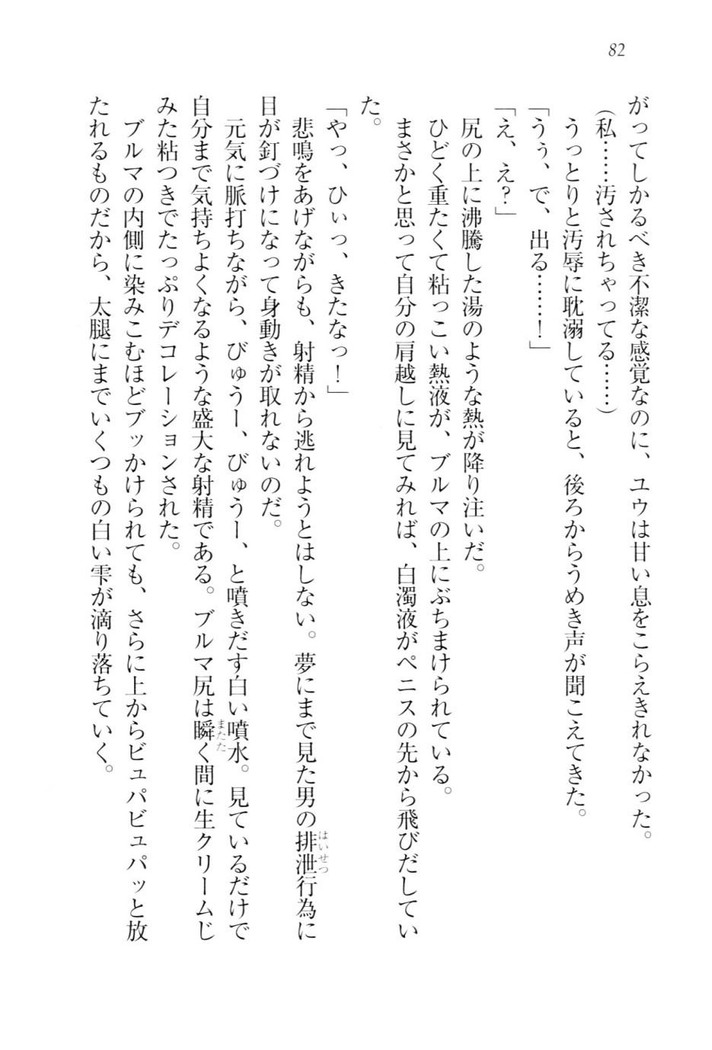 82
がってしかるべき不潔な感覚なのに、ユウは甘い息をこらえきれなかった。
(私……汚されちゃってる……)
うっとりと汚辱に耽溺していると、後ろからうめき声が聞こえてきた。
「うぅ、で、出る……！」
「え、え？」
尻の上に沸騰した湯のような熱が降り注いだ。
ひどく重たくて粘っこい熱液が、ブルマの上にぶちまけられている。
まさかと思って自分の肩越しに見てみれば、白濁液がペニスの先から飛びだしてい
た。
「やっ、ひぃっ、きたなっ！」
悲鳴をあげながらも、射精から逃れようとはしない。夢にまで見た男の排泄行為に
はいせつ
目が釘づけになって身動きが取れないのだ。
元気に脈打ちながら、びゅうー、びゅうー、と噴きだす白い噴水。見ているだけで
自分まで気持ちよくなるような盛大な射精である。ブルマ尻は瞬く間に生クリームじ
またた
みた粘つきでたっぷりデコレーションされた。
ブルマの内側に染みこむほどブッかけられても、さらに上からビュパビュパッと放
たれるものだから、太腿にまでいくつもの白い雫が滴り落ちていく。